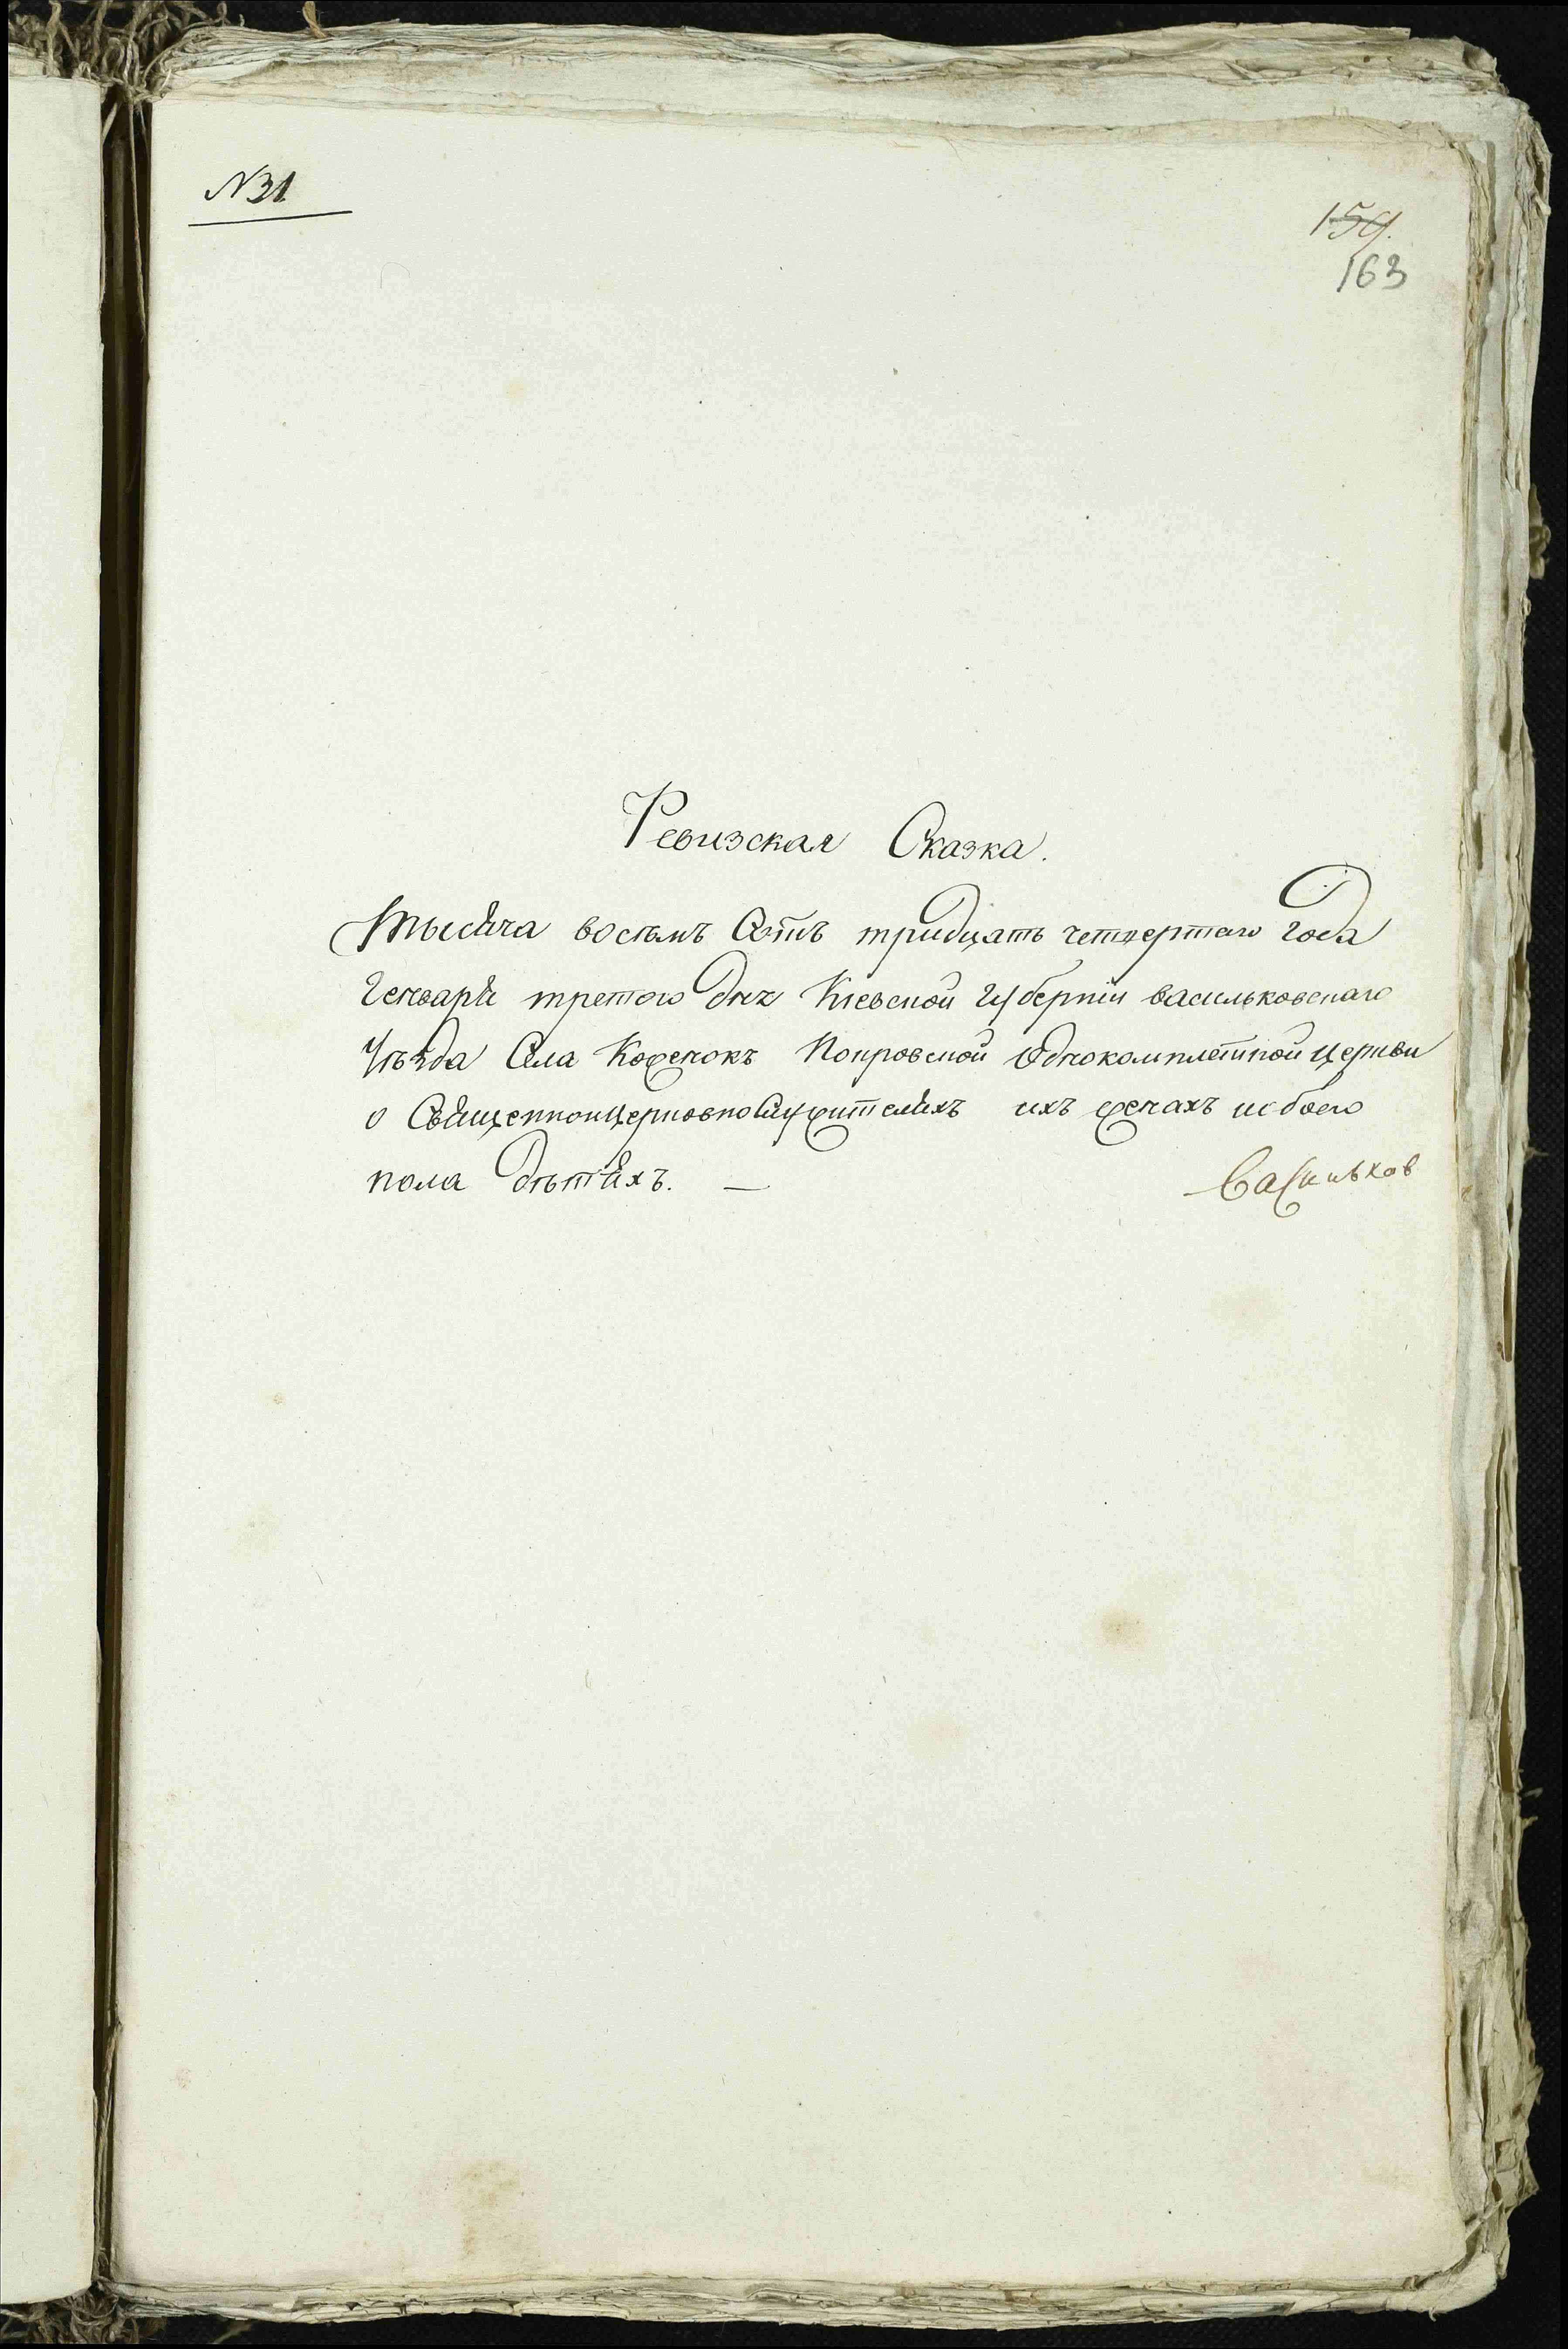 N31
159.
163
Ревизская Сказка.
Тысяча восемъ Сотъ тридцать четвертаго Года
Генваря третого дня Кіевской Губерніи васильковскаго
Уѣзда Села Коженокъ Покровской Однокомплетной церкви
о Священноицерковнослужителяхъ ихъ женахъ иобоего
пола дѣтяхъ. —
Васильков